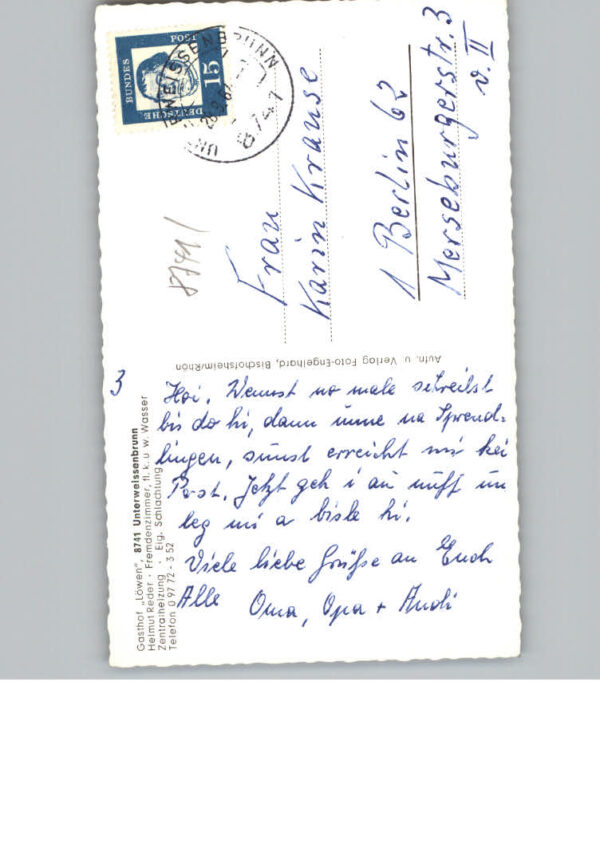 DEUTSCHE
BUNDES
POST
15
UNTERWEISSENBRUNN
8741
87411
Frau
Karin Krause
1 Berlin 62
Merseburgerstr. 3
v. II
Aufn. u. Verlag Foto-Engelhard, Bischofsheim/Rhön
Gasthof „Löwen", 8741 Unterweissenbrunn
Helmut Reder · Fremdenzimmer, fl. k. u. w. Wasser
Zentralheizung · Eig. Schlachtung
Telefon 0 97 72 - 3 52
3
Hoi. Wennst no male schreibst
bis do hi, dann imme na Sprend-
lingen, sunst erreicht mi kei
Post. Jetzt geh i au nuff un
leg mi a bisle hi.
Viele liebe Grüße an Euch
Alle Oma, Opa + Andi